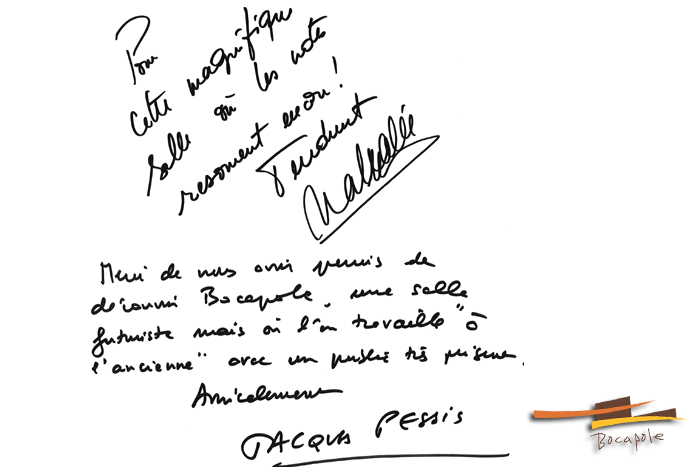 Pour
Cette magnifique
salle où les notes
resonnent encore !
Tendement
Nathalie
Merci de nous avoir permis de
découvrir Bocapole, une salle
futuriste mais où l'on travaille "à
l'ancienne" avec un public très présent.
Amicalement
JACQUES PESSIS
Bocapole